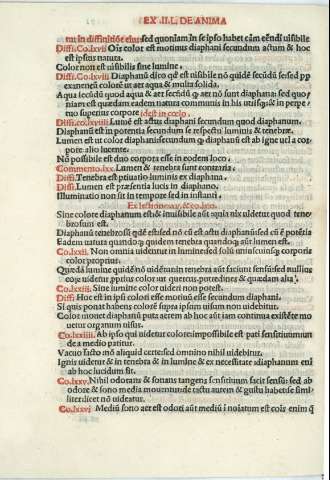 EX .II. L. DE ANIMA
tur in diffinitiõe eius sed quoniam ĩn se ipso habet cãm eẽndi uisibile
Diffi. Co. lxvii Oĩs color est motiuus diaphani secundum actum & hoc
est ipsius natura.
Color non est uisibilis sine lumine.
Diffi. Co. lxviii. Diaphanũ dico qđ est uisibile nõ quidẽ secũdũ se sed pp
extraneũ colorẽ ut aer aqua & multa solida.
Aqua secũdũ quod aqua & aer secũdũ quod aer nõ sunt diaphana: sed quo
niam est quædam eadem natura communis in his utrisque & in perpe
tuo superius corpore idest in celo.
Diffi. co. lxviiii Lumẽ est actus diaphani secundum quod diaphanum.
Diaphanũ est in potentia secundum se respectu luminis & tenebræ.
Lumen est ut color diaphani secundum quod diaphanũ est ab igne uel a cor
pore alio lucente.
Nõ possibile est duo corpora esse in eodem loco.
Commento. lxx. Lumen & tenebra sunt contraria.
Diffi. Tenebra est priuatio luminis ex diaphano.
Diffi. Lumen est præsentia lucis in diaphano.
Illuminatio non fit in tempore sed in instanti.
Ex lectione
Sine colore diaphanum est & inuisibile aut quia uix uidetur quod tene
brosum est.
Diaphanũ tenebrosũ qđẽ est sed nõ cũ est actu diaphanũ sed cũ ẽ potẽtia
Eadem natura quandoque quidem tenebra quandoque aũt lumen est.
Co. lxxii. Non omnia uidentur in lumine sed solũ uniuscuiusque corporis
color proprius.
Quædã lumine quidẽ nõ uidẽtur in tenebra aũt faciunt sensũ sed nullius
eorũ uidetur proprius color
Co. lxxiii. Sine lumine color uideri non potest.
Diffi. Hoc est in ipso colori esse motiuũ esse secundum diaphani.
Si quis ponat habens colorẽ supra ipsum uisum non uidebitur.
Color mouet diaphanũ puta aerem ab hoc aũt iam continua existẽte mo
uetur organum uisus.
Co. lxxiiii. Ab ipso qui uidetur colore impossibile est pati sensitiuum un
de a medio patitur.
Vacuo facto nõ aliquid certe sed omnino nihil uidebitur.
Ignis uidetur & in tenebra & in lumine & ex necessitate a diaphanum enĩ
ab hoc lucidum fit.
Co. lxxv. Nihil odorans & sonans tangens sensitiuum facit sensũ: sed ab
odore & sono media mouentur de tactu autem & gustu habet se simi
liter licet nõ uideatur.
Co. lxxvi Mediũ sono aer est odori aũt mediũ innoĩatum est cõis enim